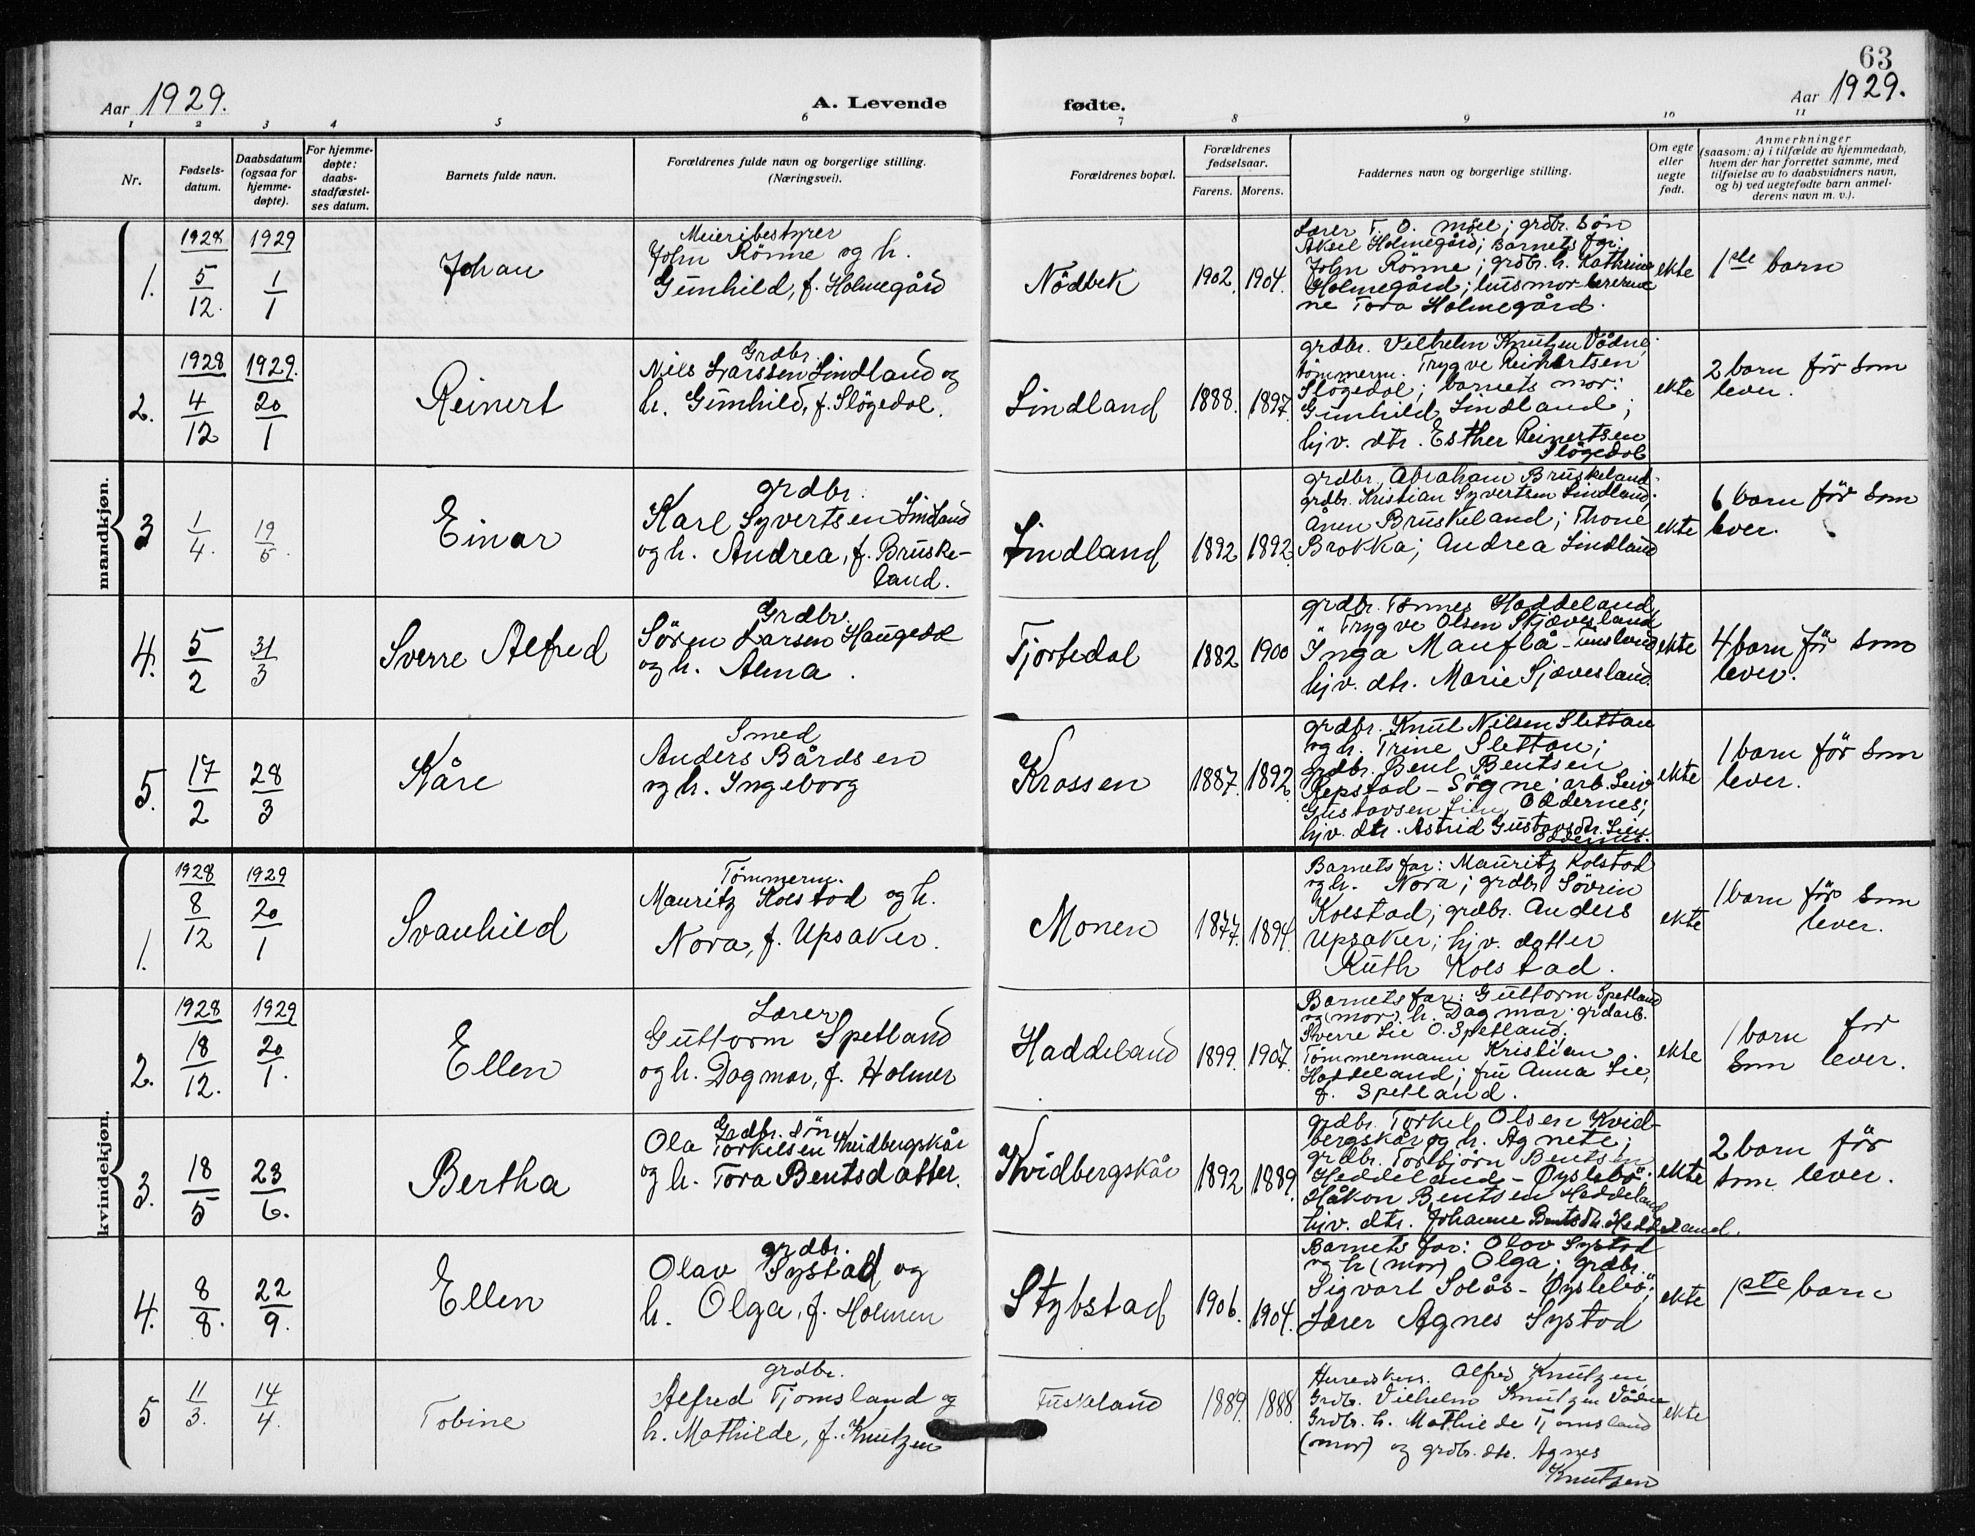 63
Aar 1929. A. Levende fødte. Aar 1929.
1 2 3 4 5 6 7 8 9 10 11
Nr.
Fødsels-
datum.
Daabsdatum
(ogsaa for
hjemme-
døpte).
For hjemme-
døpte:
daabs-
stadfæstel-
ses datum.
Barnets fulde navn.
Forældrenes fulde navn og borgerlige stilling.
(Næringsvei).
Forældrenes bopæl.
Forældrenes
fødselsaar.
Farens. Morens.
Faddernes navn og borgerlige stilling.
Om egte
eller
uegte
født.
Anmerkninger
(saasom: a) i tilfælde av hjemmedaab,
hvem der har forrettet samme, med
tilføielse av to daabsvidners navn,
og b) ved uegtefødte barn anmel-
derens navn m. v.).
mandkjøn.
1. 1928 5/12. 1929 1/1
Johan
Meieribestyrer
John Rönne og h.
Gunhild, f. Holmegård
Nödbek
1902. 1904.
Lærer T. O. möel; grdbr. sön
Aksel Holmegård; Barnets far:
John Rönne; grdbr. h. Kathrine
Holmegård; husmor lererin
ne Tora Holmegård.
ekte
1ste barn
2. 1928 4/12 1929. 20/1
Reinert
Grdbr.
Nils Larssen Lindland og
h. Gunhild, f. Slögedal.
Lindland
1888. 1897.
grdbr. Vilhelm Knutzen Vådne;
tömmerm. Trygve Reinertsen
Slögedal; barnets mor:
Gunhild Lindland;
hjv. dtr. Esther Reinertsen
Slögedal
ekte
2 barn för som
lever.
3 1/4. 19/5.
Einar
grdbr.
Karl Syvertsen Lindland
og h. Andrea, f. Bruske-
land.
Lindland
1892 1892
grdbr. Abraham Bruskeland.
grdbr. Kristian Syvertsen Lindland;
Ånen Bruskeland; Thone
Brokka; Andrea Lindland
ekte
6 barn för som
lever.
4. 5/2 31/3
Sverre Alfred
Grdbr.
Sören Larsen Haugedal
og h. Alma.
Tjortedal
1882 1900
grdbr. Tönnes Haddeland,
" Trygve Olsen Stjævesland
Inga Manflå - Finsland
hjv. dtr. Marie Sjævesland.
ekte
4 barn för som
lever.
5. 17/2 28/3
Kåre
Smed
Anders Bårdsen
og h. Ingeborg
Krossen
1887. 1892.
grdbr. Knut Nilsen Slettan
og h. Trine Slettan;
grdbr. Bent Bentsen
Repstad - Sögne; arb. Leiv
Gustavsen Lien Oddernes;
hjv. dtr. Astrid Gustavsdtr. Lien
Oddernes.
ekte
1 barn för som
lever.
kvindekjøn.
1. 1928 8/12 1929 20/1
Svanhild
Tömmerm.
Mauritz Kolstad og h.
Nora, f. Upsaker.
Monen
1877. 1894.
Barnets far: Mauritz Kolstad
og h. Nora; grdbr. Sövrin
Kolstad; grdbr. Anders
Upsaker; hjv. datter
Ruth Kolstad.
ekte
1 barn för som
lever.
2. 1928 18/12. 1929 20/1.
Ellen
Lærer
Guttorm Spetland
og h. Dagmar, f. Holmer
Haddeland
1899. 1907.
Barnets far: Guttorm Spetland
og (mor) h. Dagmar; grdarb.
Sverre Lie O. Spetland;
Tömmermann Kristian
Haddeland; fru Anna Lie,
f. Spetland.
ekte
1 barn for
som lever.
3. 18/5 23/6.
Bertha
Grdbr. sön
Ola Torkelsen Kvidbergskår
og h. Tora Bentsdatter.
Kvidbergskår
1892 1889.
grdbr. Torkel Olsen Kvid-
bergskår og h. Agnete;
grdbr. Torbjörn Bentsen
Heddeland - Øyslebö;
Håkon Bentsen Heddeland
hjv. dtr. Johanne Bentsdtr. Heddeland.
ekte
2 barn för
som lever.
4. 8/8. 22/9.
Ellen
grdbr.
Olav Systad og
h. Olga, f. Holmen
Stybstad
1906. 1904.
Barnets far: Olav Systad
og h (mor) Olga; grdbr.
Sigvart Solås - Øyslebö;
Lærer Agnes Systad
ekte
1ste barn
5 11/3. 14/4.
Tobine
grdbr.
Alfred Tjomsland og
h. Mathilde, f. Knutzen
Fuskeland
1889. 1888.
Alfred Knutzen
Grdbr. Vilhelm Knutzen Vådne
Grdbr. h. Mathilde Tjomsland
(mor) og grdbr. dtr. Agnes
Knutzen
ekte